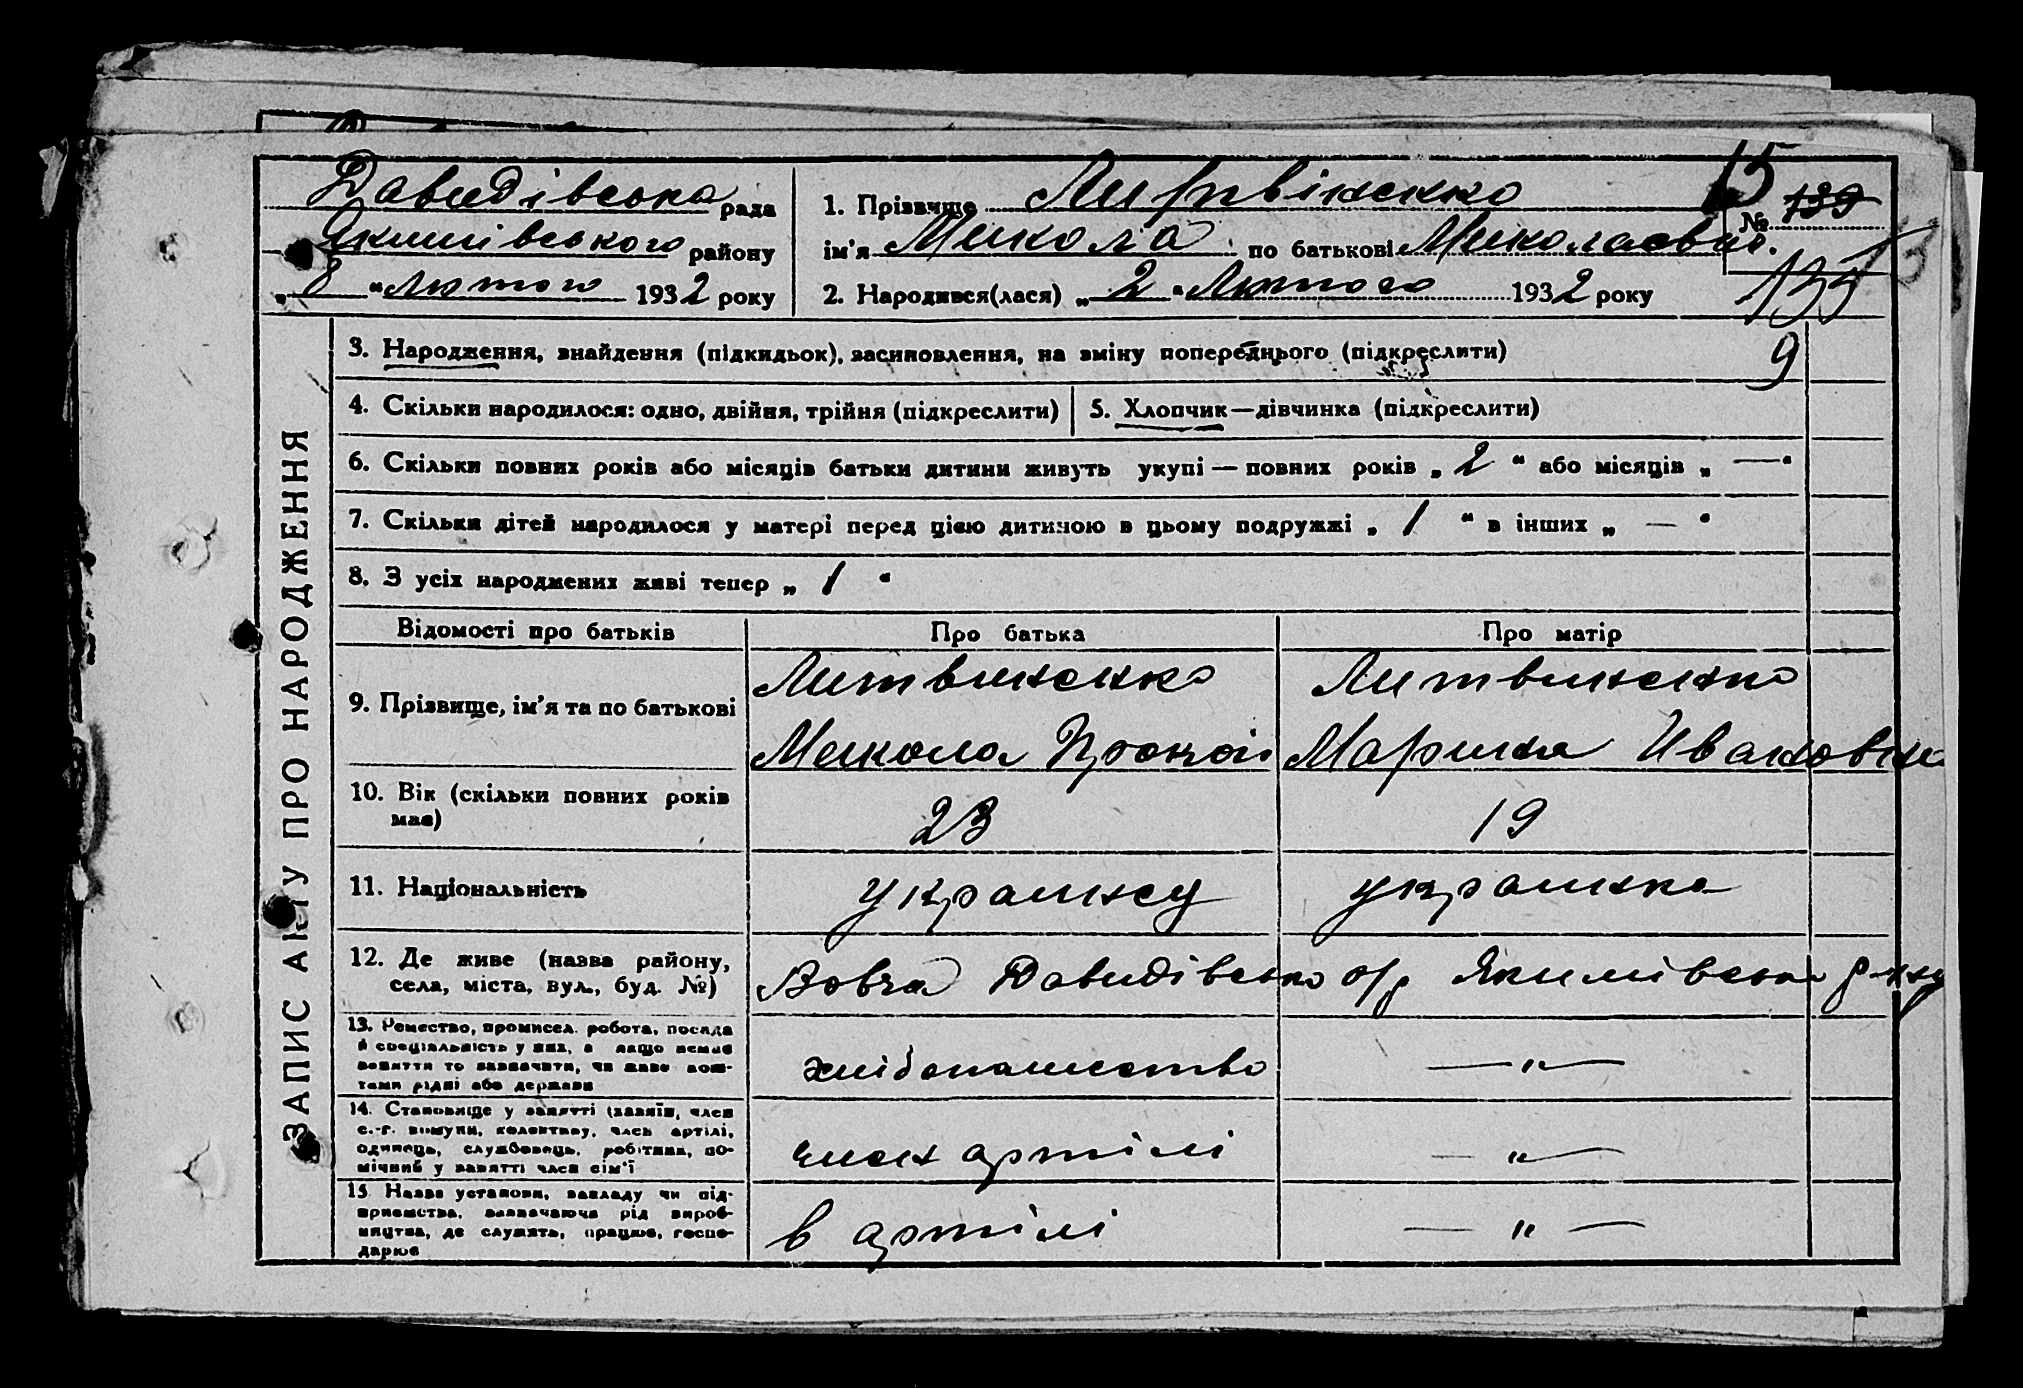 Давидівська рада
Якимівського району
„ 8 “ Лютого 1932 року
1. Прізвище Литвіненко
ім'я Микола по батькові Миколаєвич.
2. Народився(лася) „ 2 “ Лютого 1932 року
15
№ 139
135
9
ЗАПИС АКТУ ПРО НАРОДЖЕННЯ
3. Народження, знайдення (підкидьок), засиновлення, на зміну попереднього (підкреслити)
4. Скільки народилося: одно, двійня, трійня (підкреслити)
5. Хлопчик—дівчинка (підкреслити)
6. Скільки повних років або місяців батьки дитини живуть укупі — повних років „ 2 “ або місяців „ — “
7. Скільки дітей народилося у матері перед цією дитиною в цьому подружжі „ 1 “ в інших „ — “
8. З усіх народжених живі тепер „ 1 “
Відомості про батьків
Про батька
Про матір
9. Прізвище, ім'я та по батькові
Литвиненко
Микола Прокоп
Литвиненко
Марина Ивановна
10. Вік (скільки повних років
має)
23
19
11. Національність
українец
украинка
12. Де живе (назва району,
села, міста, вул., буд. №)
Вовча Давидівсько с/р Якимівськ р-ну
13. Ремество, промисел. робота, посада
й спеціальність у них, а якщо немає
заняття то зазначати, чи живе кош-
тами рідні або держави
хлібопашество
— „ —
14. Становище у занятті (хазяїн, член
с.-г. комуни, колективу, член артілі,
одинець, службовець, робітник, по-
мічний у занятті член сім'ї
член артілі
— „ —
15 Назва установи, закладу чи під-
приємства, зазначаючи рід вироб-
ництва, де служить, працює, госпо-
дарює
в артілі
— „ —